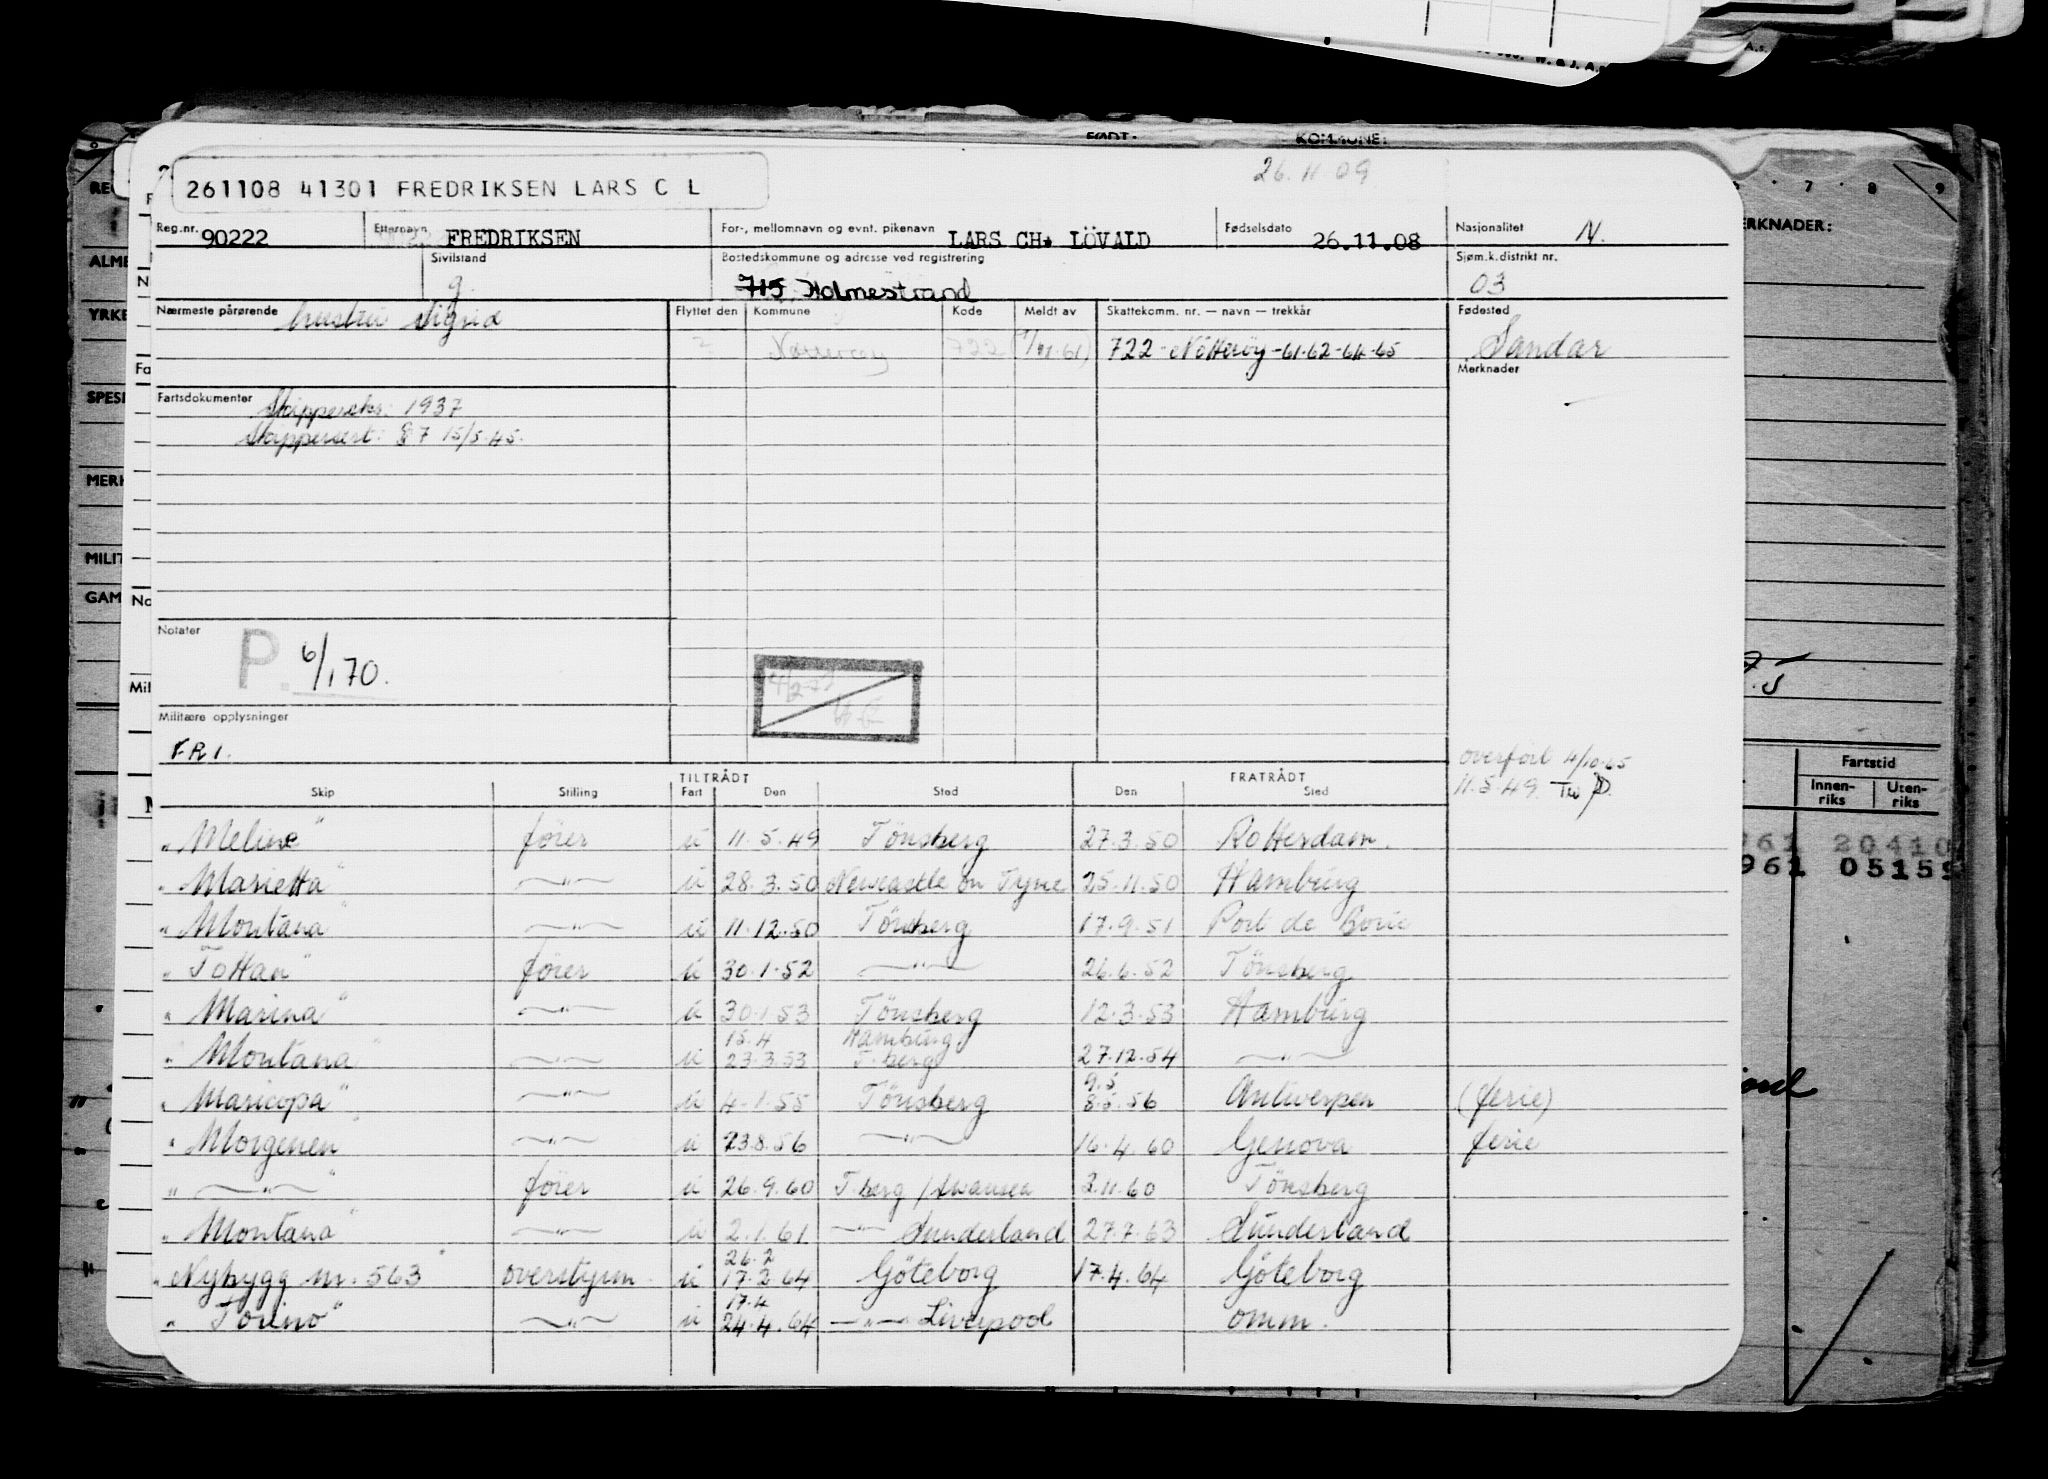 FØDT: KOMMUNE:
26.11.09
261108 41301 FREDRIKSEN LARS C L
Reg.nr. 90222 Etternavn FREDRIKSEN For-, mellomnavn og evnt. pikenavn LARS CH. LÖVALD Fødselsdato 26.11.08 Nasjonalitet N.
Sivilstand g. Bostedskommune og adresse ved registrering 715 Holmestrand Sjøm.k.distrikt nr. 03
Nærmeste pårørende hustru Sigrid Flyttet den Kommune Kode Meldt av Skattekomm. nr. — navn — trekkår Fødested
? Nötteröy 722 722 - Nötteröy - 61-62-64-65 Sandar
Merknader
Fartsdokumenter Skippereks: 1937
Skippersert: § 7 15/5.45.
Notater
P. 6/1 70.
Militære opplysninger
F.R.I.
overført 4/10-65
11.5.49
TILTRÅDT FRATRÅDT
Skip Stilling Fart Den Sted Den Sted
"Meline" förer u 11.5.49 Tönsberg 27.3.50 Rotterdam.
"Marietta" —"— u 28.3.50 Newcastle on Tyne 25.11.50 Hamburg
"Montana" —"— u 11.12.50 Tönsberg 17.9.51 Port de Bouc
"Tottan" förer u 30.1.52 —"— 26.6.52 Tönsberg
"Marina" —"— u 30.1.53 Tönsberg 12.3.53 Hamburg
15.4 Hamburg
"Montana" —"— u 23.3.53 T.berg 27.12.54 —"—
9.5
"Maricopa" —"— u 4.1.55 Tönsberg 8.5.56 Antwerpen (ferie)
"Morgenen" —"— u 23.8.56 —"— 16.4.60 Genova ferie
" —"— " förer u 26.9.60 T.berg / Swansea 3.11.60 Tönsberg
"Montana" —"— u 2.1.61 —"— Sunderland 27.7.63 Sunderland
26.2
"Nybygg nr. 563 overstyrm. u 17.2.64 Göteborg 17.4.64 Göteborg
17.4
"Torino" —"— u 24.4.64 —"— Liverpool omm.
6 7 8 9
MERKNADER:
Fartstid
Innen-riks Uten-riks
961 20410
961 05159